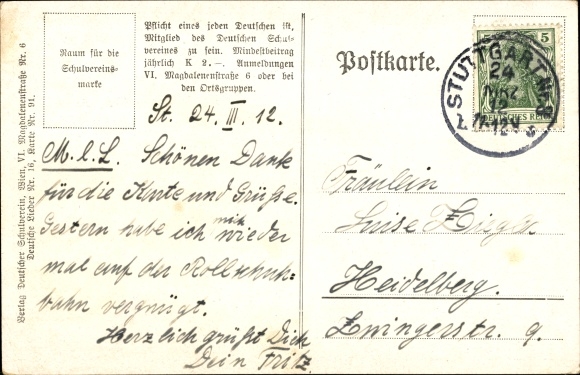 Verlag Deutscher Schulverein, Wien, VI. Magdalenenstraße Nr. 6
Deutsche Lieder Nr. 16, Karte Nr. 91.
Raum für die
Schulvereins-
marke
Pflicht eines jeden Deutschen ist,
Mitglied des Deutschen Schul-
vereines zu sein. Mindestbeitrag
jährlich K 2.—. Anmeldungen
VI, Magdalenenstraße 6 oder bei
den Ortsgruppen.
Postkarte.
5
DEUTSCHES REICH
STUTTGART
24
MRZ
12
St. 24. III. 12.
M. l. L. Schönen Dank
für die Karte und Grüße.
Gestern habe ich mich wieder
mal auf der Rollschuh-
bahn vergnügt.
Herzlich grüßt Dich
Dein Fritz.
Fräulein
Luise Ziegler
Heidelberg.
Zwingerstr. 9.